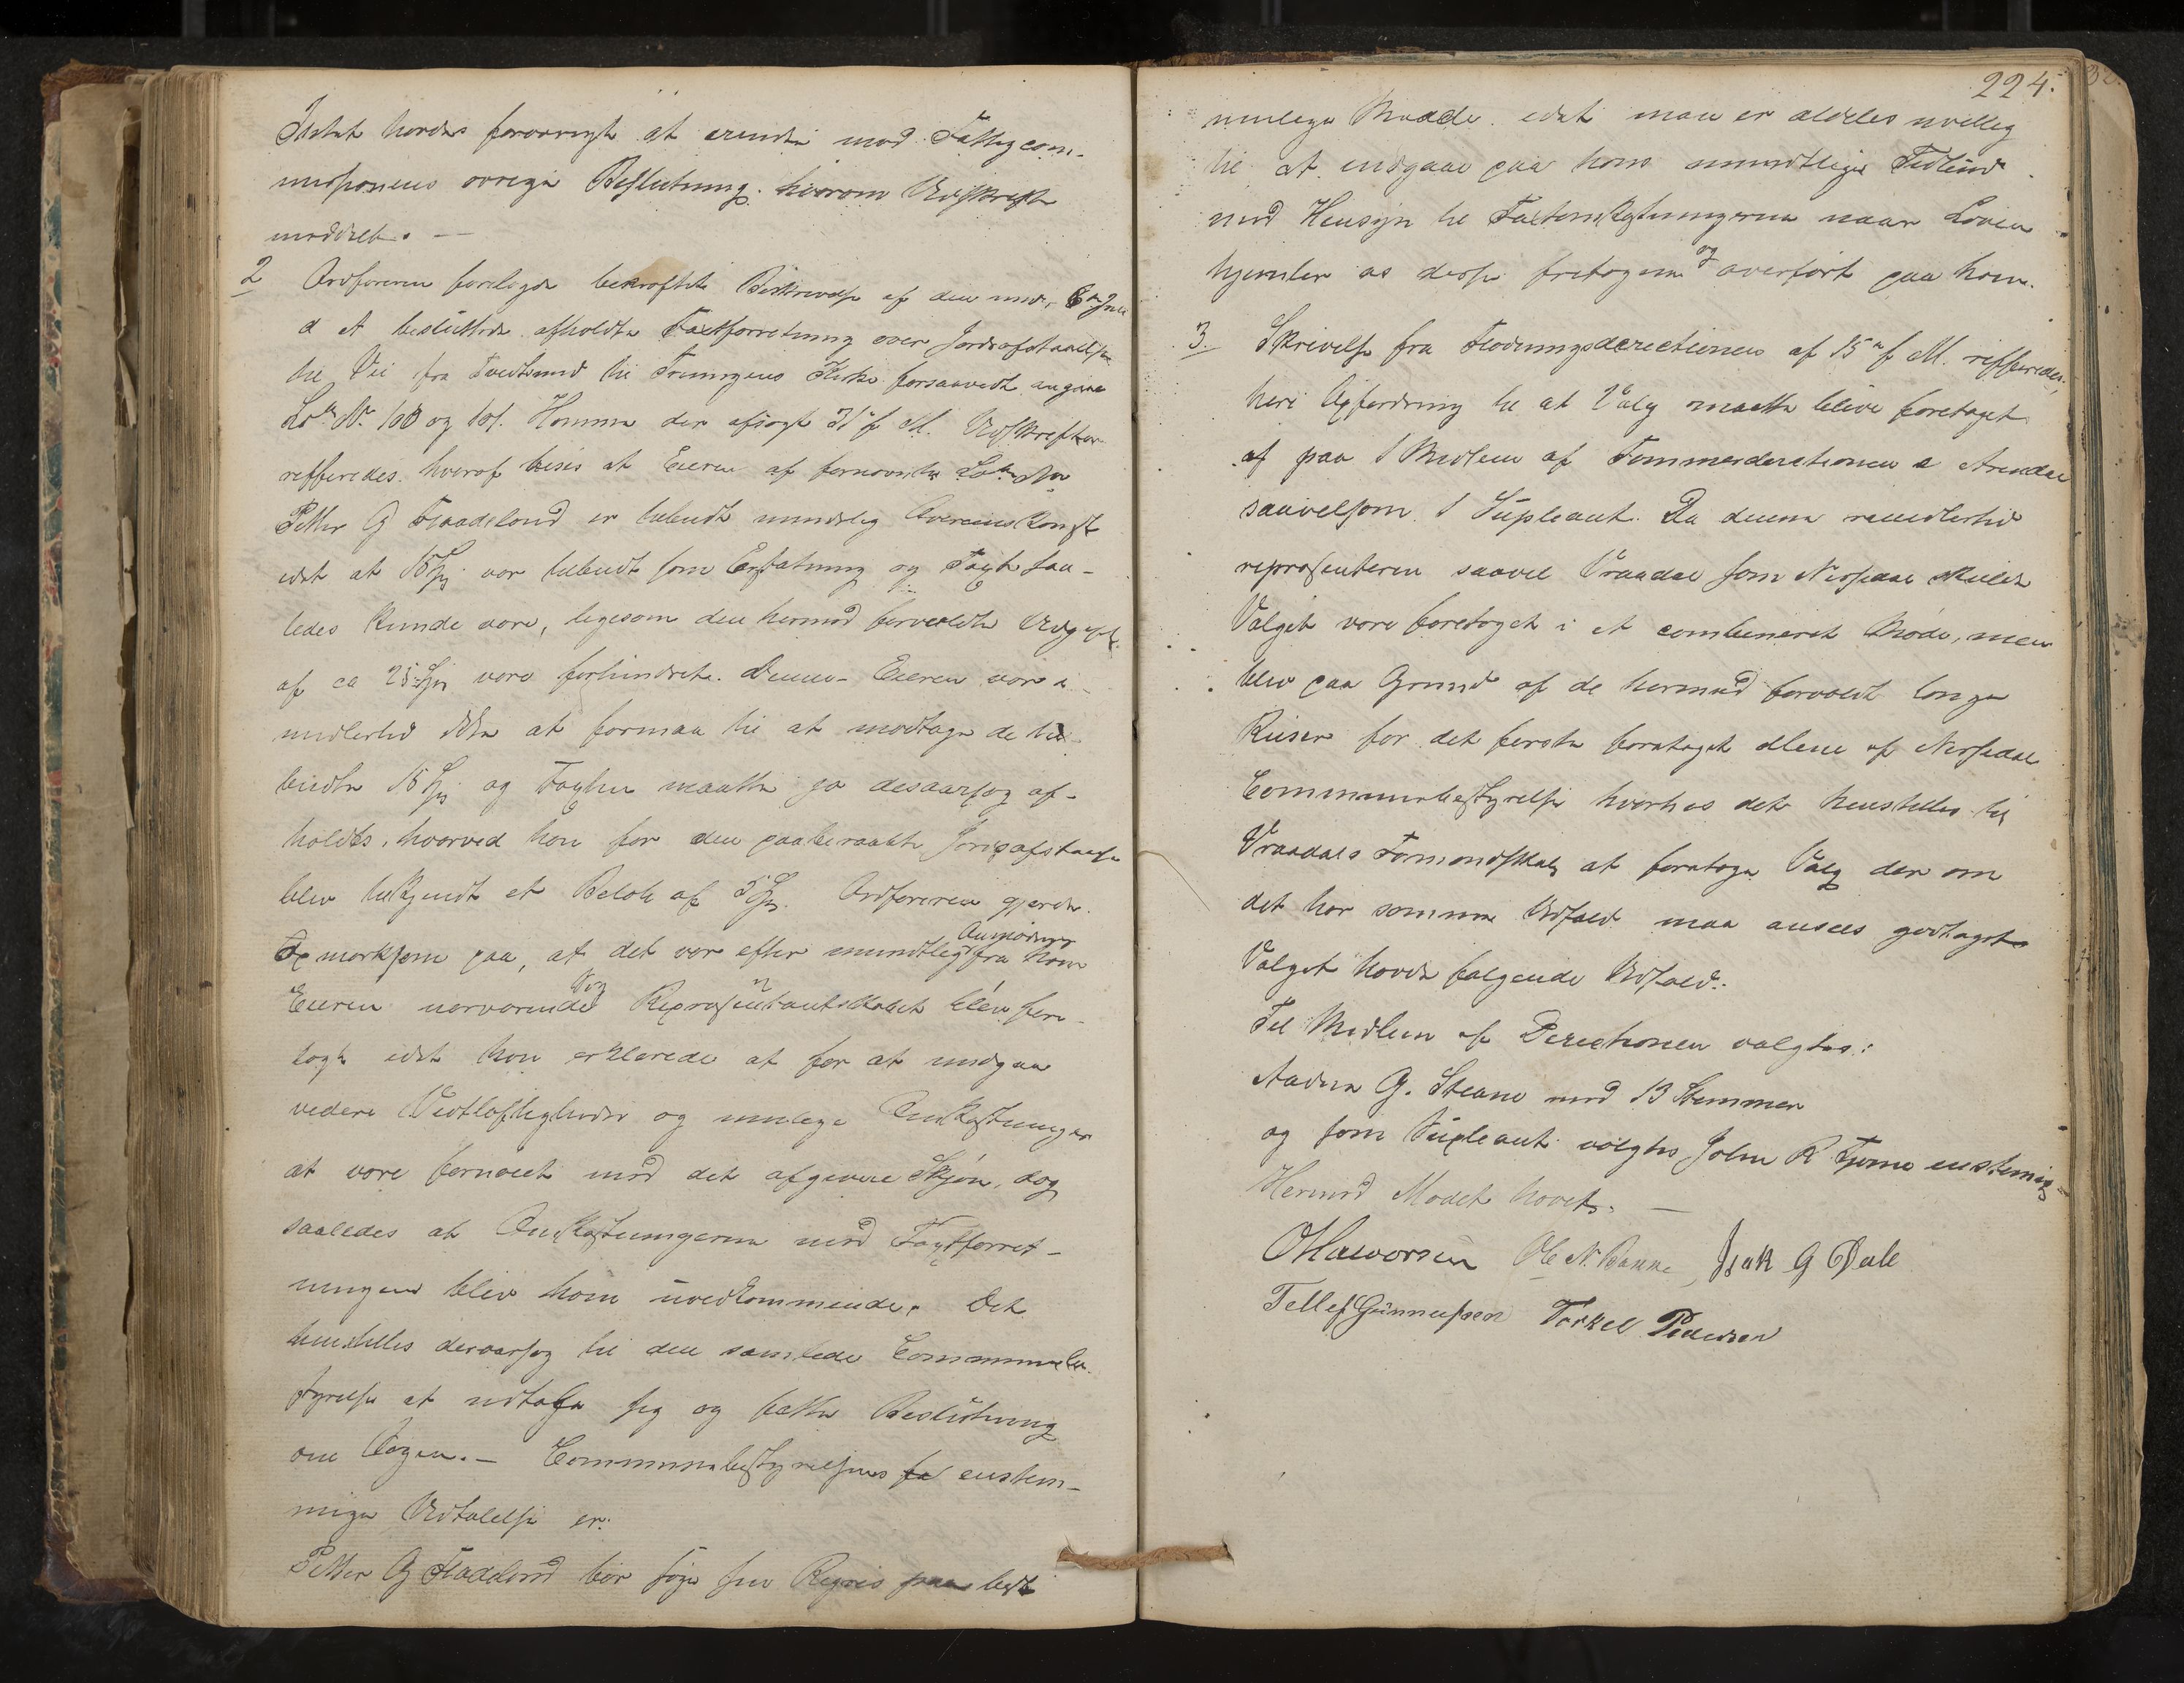 Intet havdes forøvrigt at erindre mod Fattigcom-
missionens øvrige Beslutning. hvorom Udskrift
meddelt. —
2 Ordføreren forelagde bekræftet Beskrivelse af den under 6te Juli
d A besluttede afholdte Taxtforretning over Jordafstaaelse
til Vei fra Tveitsund til Treungens Kirke forsaavidt angaar
Lb. N. 100 og 101. Homme der afsagt 31 f M. Udskriften
refferedes. hveraf vises at Eieren af fornævnte Lb. No
Petter G Fraadeland er tilbudt mundtlig Overenskomst
idet at 15 Spd var tilbudt som Erstatning og Taxt saa-
ledes kunde være, ligesom den hermed forvoldte Udgift
af ca 25 Spd være forhindret. Denne Eieren var i-
midlertid ikke at formaa til at modtage de til-
budte 15 Spd og Taxten maatte jo desaarsag af-
holdes, hvorved han for den paaberaabte Jordafstaaelse
blev tilkjendt et Beløb af 5 Spd. Ordføreren gjorde
Opmærksom paa, at det var efter mundtlig Anmodning fra ham
Eieren nærværende Repræsentantskabet blev fore-
tagt idet han erklærede at for at undgaa
videre Vidtløftigheder og mulige Omkostninger
at være fornøiet med det afgivne Skjøn, dog
saaledes at Omkostningerne ved Taxtforret-
ningen blev ham uvedkommende. Det
henstilles deraarsag til den samlede Communebe-
styrelse at udtale sig og fatte Beslutning
om Sagen. — Communebestyrelsens enstem-
mige Udtalelse er:
Petter G Fraadeland bør søge sin Regres paa bedst
224.
mulige Maade. idet man er aldeles uvillig
til at indgaae paa hans mundtlige Tilbud
med Hensyn til Taxtomkostningerne naar Loven
hjemler os disse fratagen og overført paa ham.
3. Skrivelse fra Flødningsdirectionen af 15 f M. refferedes.
heri Opfordring til at Valg maatte blive foretaget
af paa 1 Medlem af Tømmerdirectionen i Arendal
saavelsom 1 Supleant. Da denne imidlertid
repræsenterer saavel Vraadal som Nissedal skulde
Valget være foretaget i et combineret Møde, men
blev paa Grund af de hermed forvoldt lange
Reiser for det første foretaget allene af Nissedals
Communebestyrelse hvorhos det henstilles til
Vraadals Formandskab at foretage Valg der om
det har samme Udfald maa ansees godtaget
Valget havde følgende Udfald.
Til Medlem af Directionen valgtes:
Aadne G. Steane med 13 Stemmer
og som Supleant valgtes John R Tjørne enstemig
Hermed Mødet hævet. —
OHalvorsen Ole N. Bakke, Isak G Dale
Tellef Gunnufsen Torkel Pedersen